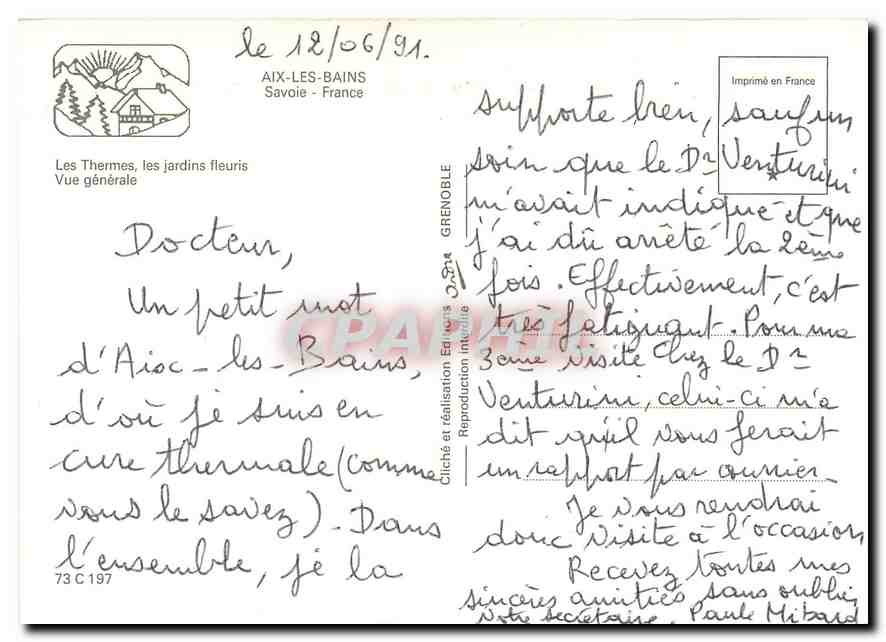 le 12/06/91.
AIX-LES-BAINS
Savoie - France
Imprimé en France
Les Thermes, les jardins fleuris
Vue générale
Docteur,
Un petit mot
d'Aix-les-Bains,
d'où je suis en
cure thermale (comme
vous le savez). Dans
l'ensemble, je la
73 C 197
Cliché et réalisation Editions André GRENOBLE
Reproduction interdite
CPAPHIL
supporte bien, sauf un
soin que le Dr Venturini
m'avait indiqué et que
j'ai dû arrêté la 2ème
fois. Effectivement, c'est
très fatiguant. Pour ma
3ème visite chez le Dr
Venturini, celui-ci m'a
dit qu'il vous ferait
un rapport par courrier.
Je vous rendrai
donc visite à l'occasion
Recevez toutes mes
sincères amitiés sans oublier
votre secrétaire. Paule Mibard